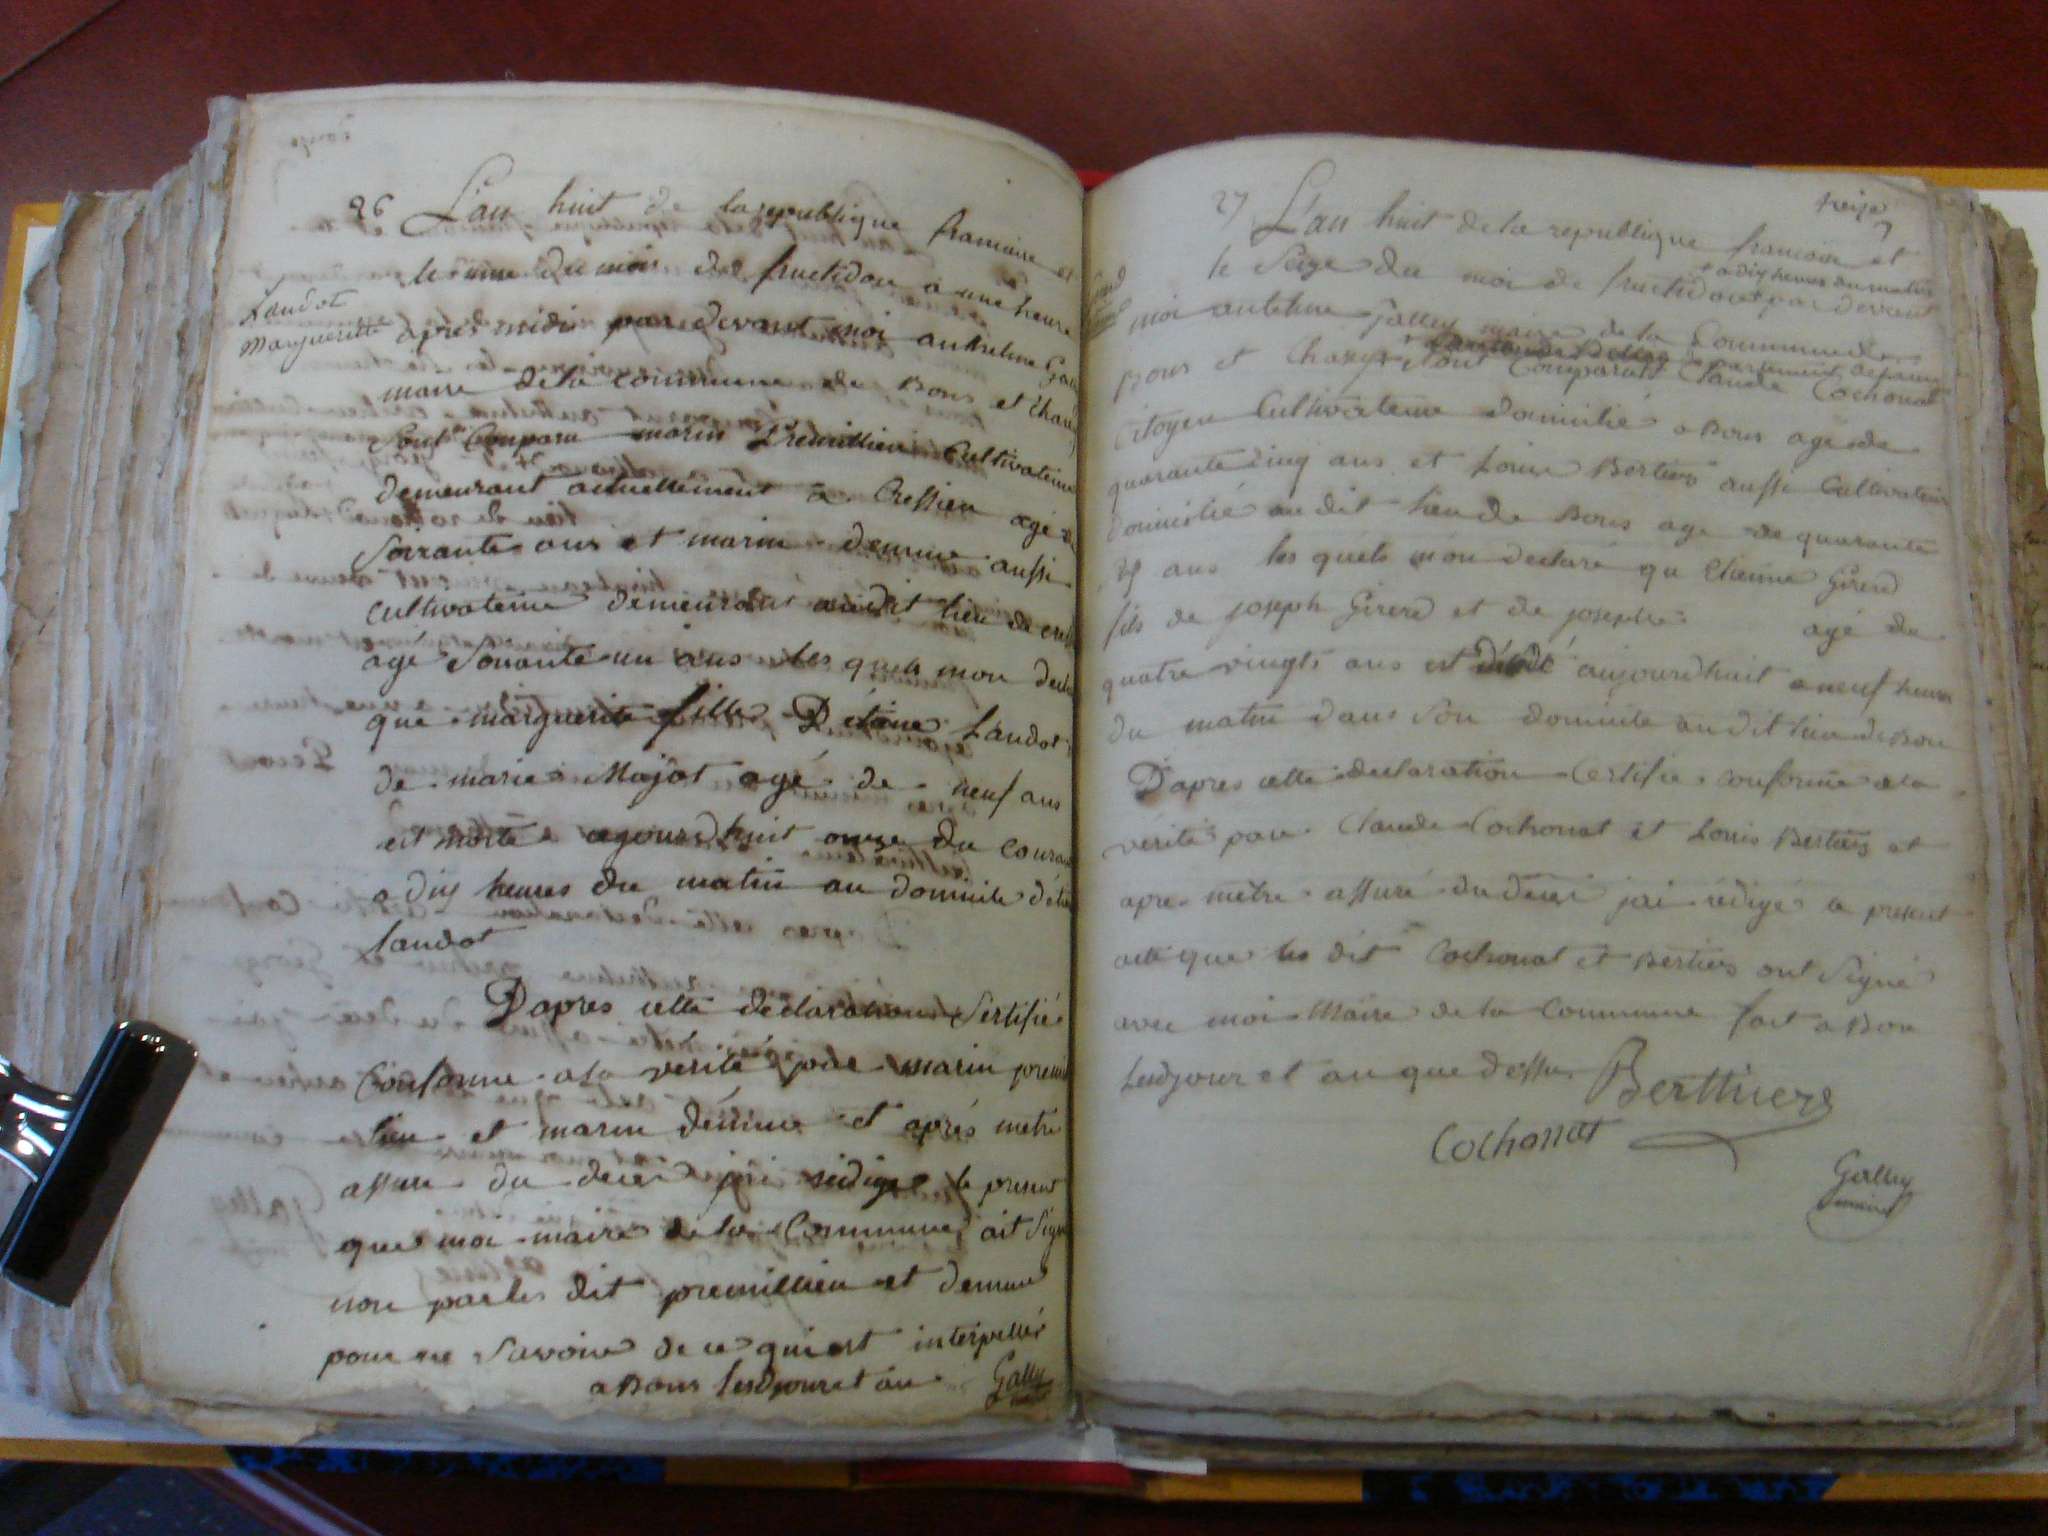 26 L'an huit de la republique francaise et
le onze du mois de fructidor a une heure
Landot
Margueritte
apres midi par devant moi anthelme Gall
maire de la commune de Bons et Chazey
sont Comparu marin Premillieu Cultivateur
demeurant actuellement a Cressieu agé de
soixante ans et marin demme aussi
cultivateur demeurant audit lieu de cres
agé soixante un ans les quels mon decla
que marguerite fille D'etiene Landot
de marie Majot agé de neuf ans
est morte aujourdhuit onze du couran
a dix heures du matin au domicile d'eti
Landot
D'apres cette declaration Sertifié
Conforme a la verité par marin premil
lieu et marin démme et après metre
assure du deces jai redige le present
que moi maire de la Commune ait Signé
non pas les dit premillieu et demme
pour ne savoire de ce qui est interpellé
a Bons lesdjour et an Gally
27 treize
L'an huit de la republique francoise et
le Seize du moi de fructidor par devant
a dix heures du matin
moi antelme Gally maire de la Commune de
Bons et Chazey sont Comparait Claude Cochonat
departement de
Citoyen Cultivateur domicilié a Bons age de
quarante cinq ans et Louis Bertiers aussi Cultivateur
domicilié au dit lieu de Bons age de quarante
ans les quels mon declaré qu Etienne Girerd
fils de joseph Girerd et de josephe agé de
quatre vingts ans est décédé aujourdhuit a neuf heures
du matin dans son domicile au dit lieu de Bon
D'apres cette declaration Certifié conforme a la
vérité par Claude Cochonat et Louis Bertiers et
apre metre assuré du décés jai rédigé ce present
acte que les dit Cochonat et Bertiers ont Signé
avec moi Maire de la Commune fait a Bon
lesdjour et an que dessu Berthiers
Cochonat
Gally
maire